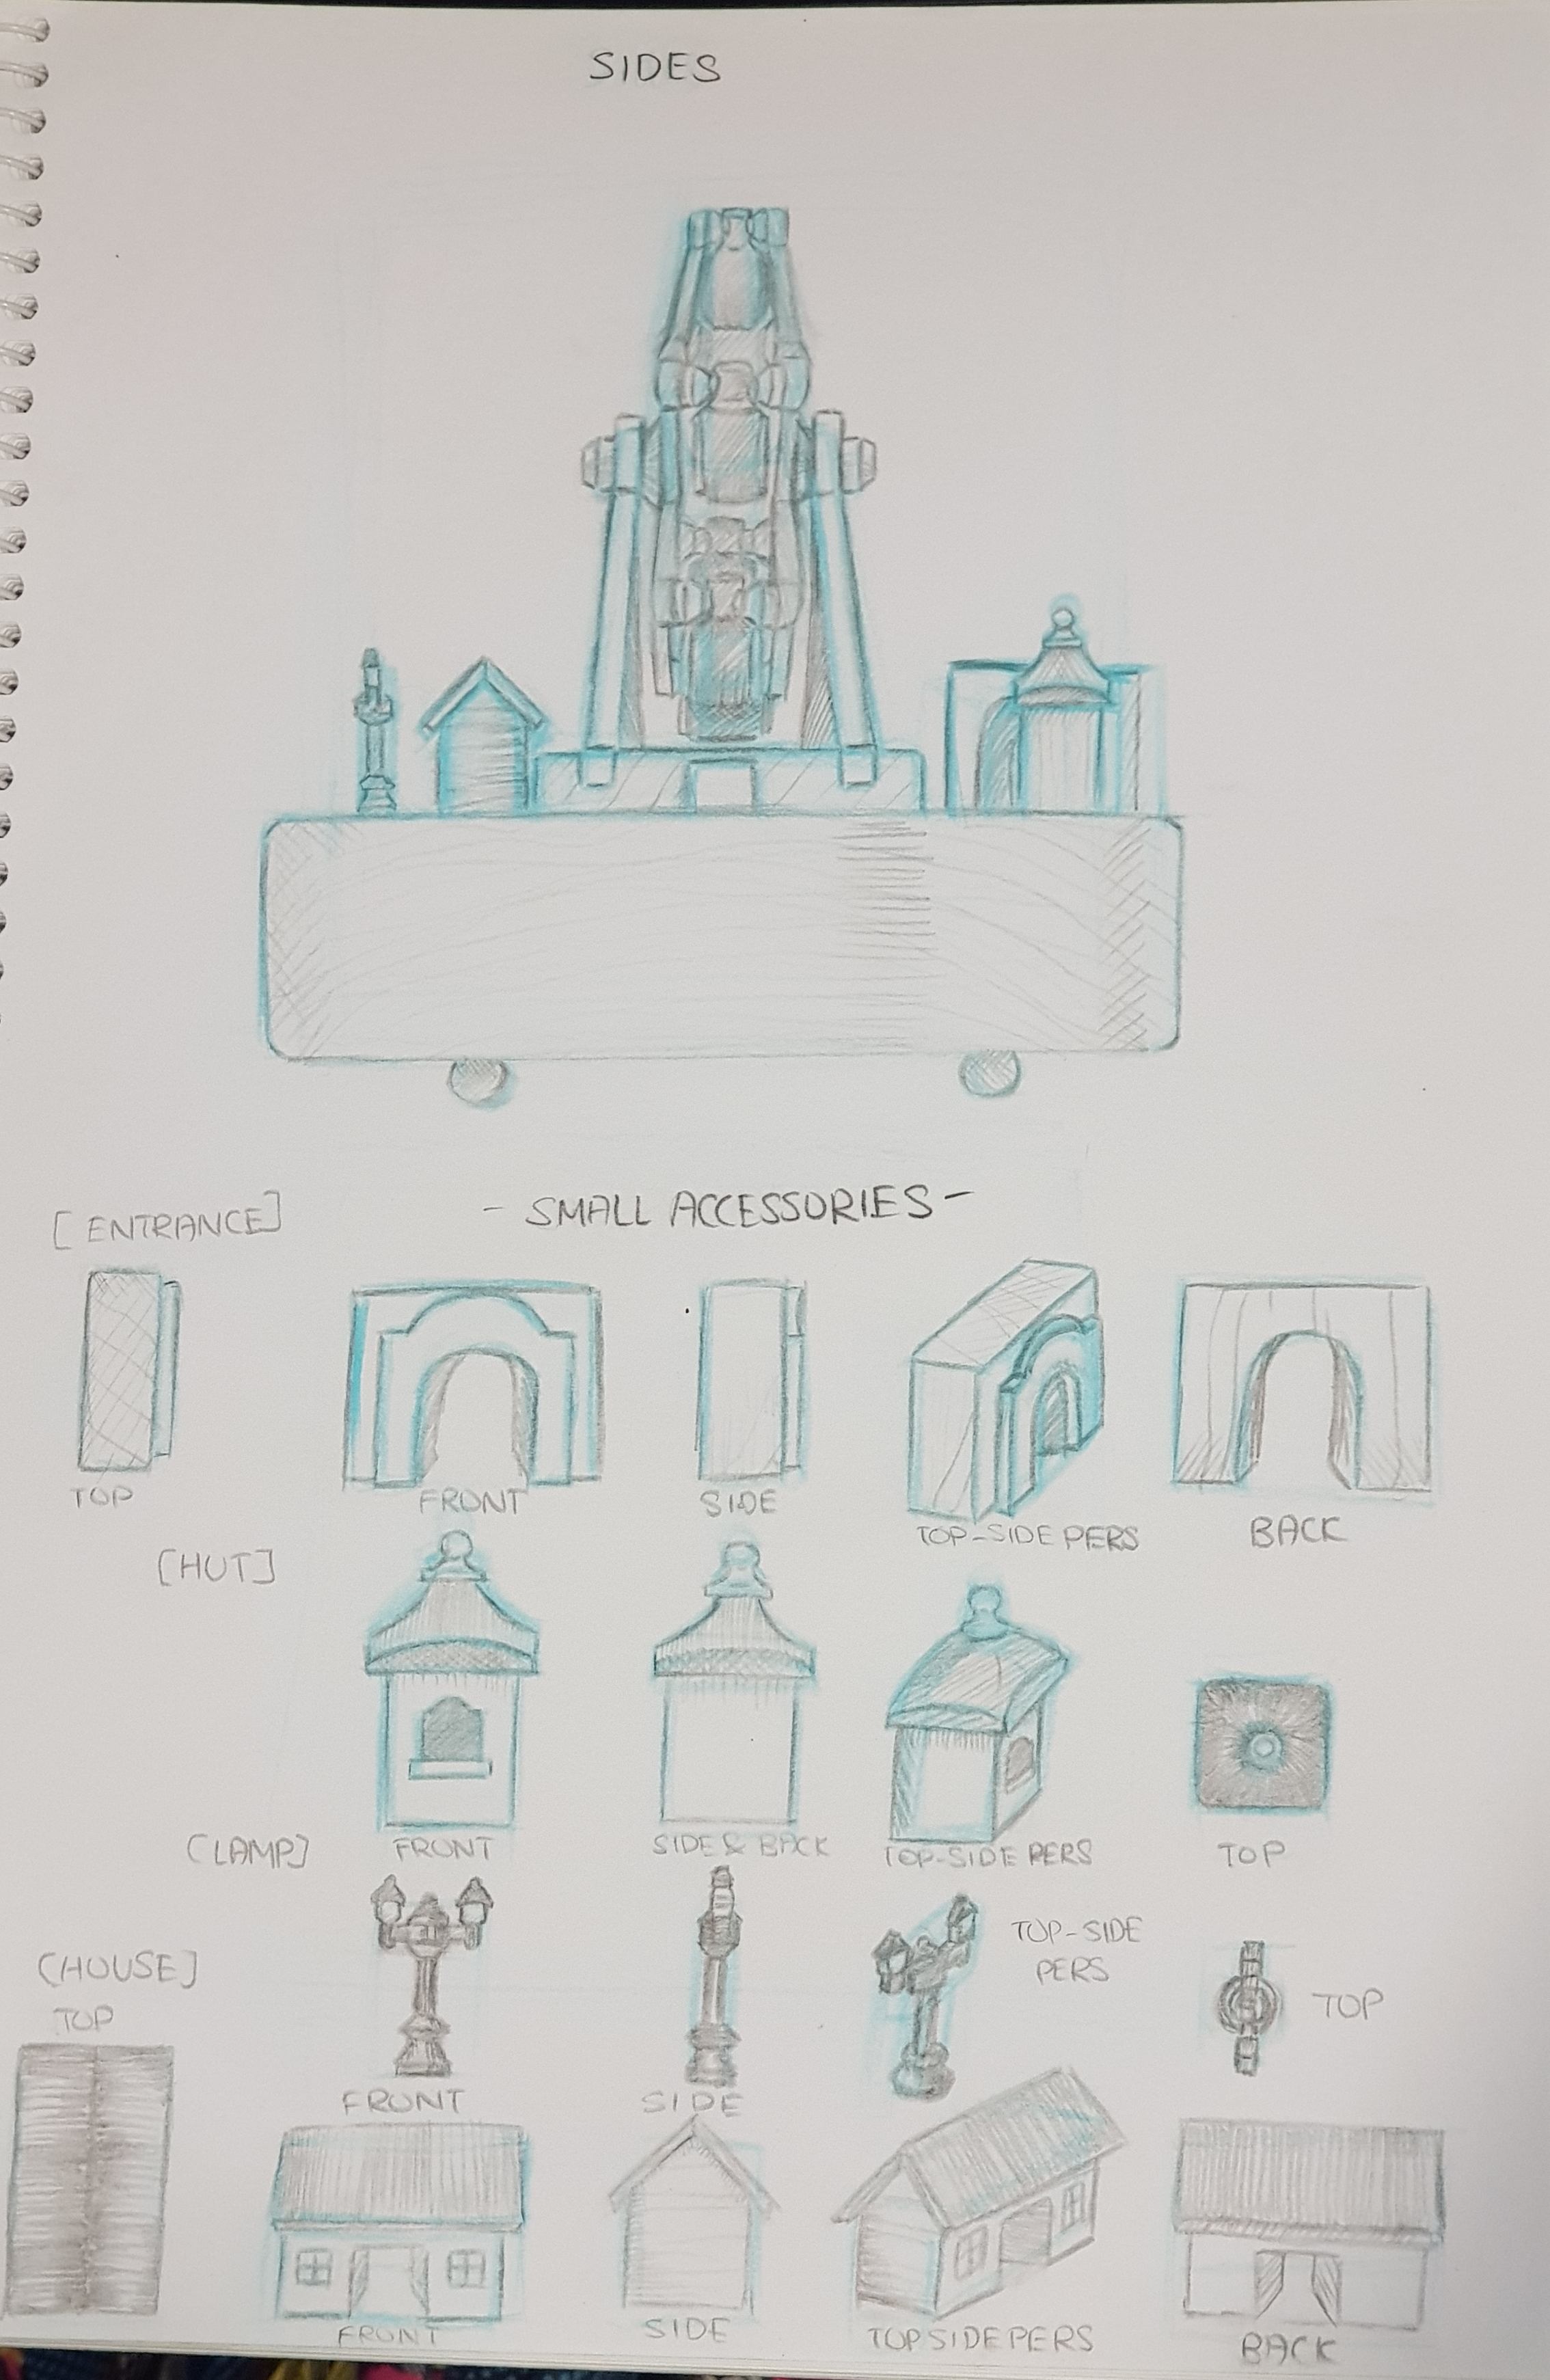 SIDES
- SMALL ACCESSORIES -
[ENTRANCE]
TOP
FRONT
SIDE
TOP-SIDE PERS
BACK
[HUT]
FRONT
SIDE & BACK
TOP-SIDE PERS
TOP
[LAMP]
FRONT
SIDE
TOP-SIDE
PERS
TOP
[HOUSE]
TOP
FRONT
SIDE
TOP SIDE PERS
BACK